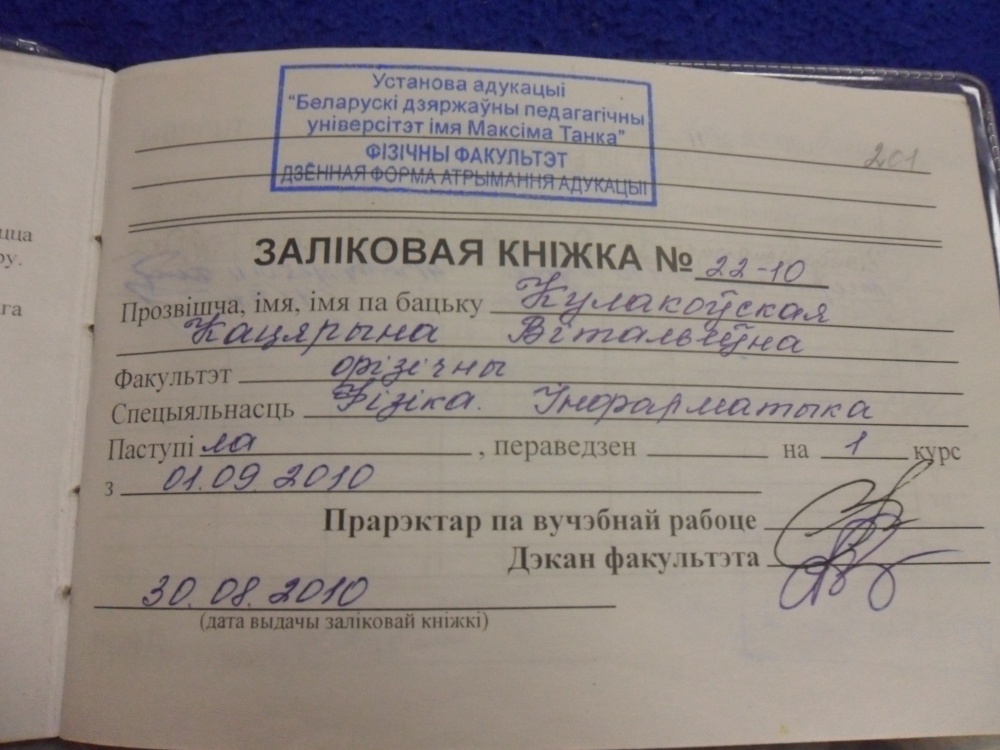 Установа адукацыі
"Беларускі дзяржаўны педагагічны
універсітэт імя Максіма Танка"
ФІЗІЧНЫ ФАКУЛЬТЭТ
ДЗЁННАЯ ФОРМА АТРЫМАННЯ АДУКАЦЫІ
201
ЗАЛІКОВАЯ КНІЖКА № 22-10
Прозвішча, імя, імя па бацьку Кулакоўская
Кацярына Вітальеўна
Факультэт фізічны
Спецыяльнасць Фізіка. Інфарматыка
Паступіла, пераведзен на 1 курс
з 01.09.2010
Прарэктар па вучэбнай рабоце
Дэкан факультэта
30.08.2010
(дата выдачы заліковай кніжкі)